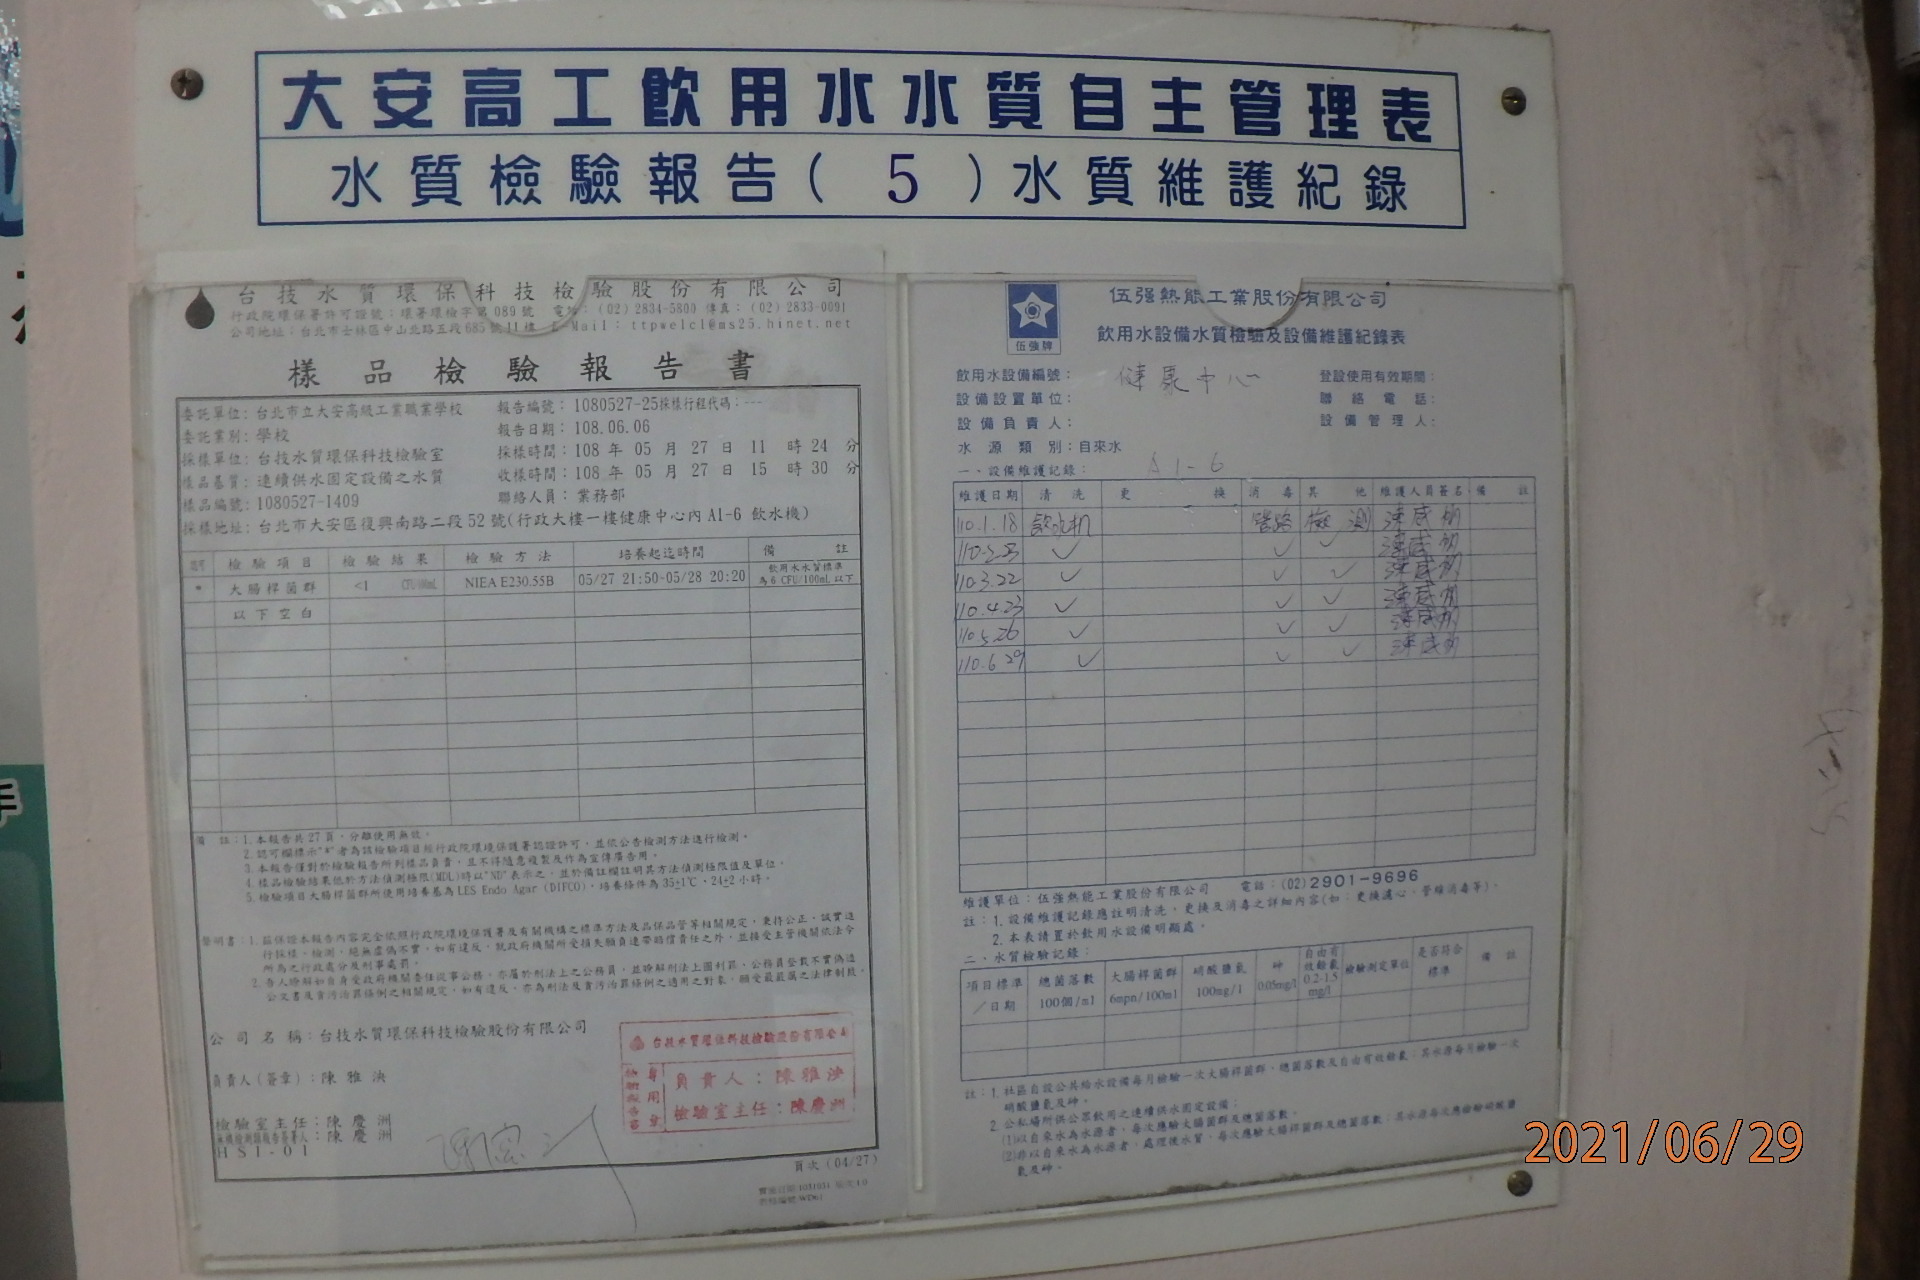 大安高工飲用水水質自主管理表
水質檢驗報告( 5 )水質維護紀錄
台技水質環保科技檢驗股份有限公司
行政院環保署許可證號：環署環檢字第089號 電話：(02)2834-5800 傳真：(02)2833-0091
公司地址：台北市士林區中山北路五段685號11樓 E-Mail：ttpwelcl@ms25.hinet.net
樣品檢驗報告書
委託單位：台北市立大安高級工業職業學校 報告編號：1080527-25採樣行程代碼：---
委託業別：學校 報告日期：108.06.06
採樣單位：台技水質環保科技檢驗室 採樣時間：108 年 05 月 27 日 11 時 24 分
樣品基質：連續供水固定設備之水質 收樣時間：108 年 05 月 27 日 15 時 30 分
樣品編號：1080527-1409 聯絡人員：業務部
採樣地址：台北市大安區復興南路二段52號(行政大樓一樓健康中心內 A1-6 飲水機)
檢驗項目 檢驗結果 檢驗方法 培養起迄時間 備註
* 大腸桿菌群 <1 NIEA E230.55B 05/27 21:50~05/28 20:20 飲用水水質標準為6 CFU/100mL以下
以下空白
備 註：1.本報告共27頁，分離使用無效。
2.認可欄標示"*"者為該檢驗項目經行政院環境保護署認證許可，並依公告檢測方法進行檢測。
3.本報告僅對於檢驗報告所列樣品負責，且不得隨意複製及作為宣傳廣告用。
4.樣品檢驗結果低於方法偵測極限(MDL)時以"ND"表示之，並於備註欄註明其方法偵測極限值及單位。
5.檢驗項目大腸桿菌群所使用培養基為LES Endo Agar (DIFCO)，培養條件為35±1℃、24±2小時。
聲明書：1.茲保證本報告內容完全依照行政院環境保護署及有關機構之標準方法及品保品管等相關規定，秉持公正、誠實進
行採樣、檢測，絕無虛偽不實，如有違反，就政府機關所受損失願負連帶賠償責任之外，並接受主管機關依法令
所為之行政處分及刑事處罰。
2.吾人瞭解如自身受政府機關委任從事公務，亦屬於刑法上之公務員，並瞭解刑法上圖利罪、公務員登載不實偽造
公文書及貪污治罪條例之相關規定，如有違反，亦為刑法及貪污治罪條例之適用之對象，願受最嚴厲之法律制裁。
公司名稱：台技水質環保科技檢驗股份有限公司
負責人(簽章)：陳雅泱
檢驗室主任：陳慶洲
陳慶洲
HSI-01
台技水質環保科技檢驗股份有限公司
負責人：陳雅泱
檢驗室主任：陳慶洲
頁次(04/27)
伍強牌
伍強熱能工業股份有限公司
飲用水設備水質檢驗及設備維護紀錄表
飲用水設備編號： 健康中心 登設使用有效期間：
設備設置單位： 聯絡電話：
設備負責人： 設備管理人：
水源類別：自來水
一、設備維護記錄： A1-6
維護日期 清洗 更換 消毒 其他 維護人員簽名 備註
110.1.18 飲水机 管路 檢測
110.2.23 ✓ ✓ ✓
110.3.22 ✓ ✓ ✓
110.4.23 ✓ ✓ ✓
110.5.26 ✓ ✓ ✓
110.6.29 ✓ ✓ ✓
維護單位：伍強熱能工業股份有限公司 電話：(02)2901-9696
註：1.設備維護記錄應註明清洗、更換及消毒之詳細內容(如：更換濾心、管維消毒等)。
2.本表請置於飲用水設備明顯處。
二、水質檢驗記錄：
項目標準／日期 總菌落數100個/ml 大腸桿菌群6mpn/100ml 硝酸鹽氮100mg/l 砷0.05mg/l 自由有效餘氯0.2-1.5mg/l 檢驗測定單位 是否符合標準 備註
註：1.社區自設公共給水設備每月檢驗一次大腸桿菌群、總菌落數及自由有效餘氯；其水源每月檢驗一次
硝酸鹽氮及砷。
2.公私場所供公眾飲用之連續供水固定設備：
(1)以自來水為水源者，每次應驗大腸桿菌群及總菌落數。
(2)非以自來水為水源者，處理後水質，每次應驗大腸桿菌群及總菌落數；其水源每次應檢驗硝酸鹽
氮及砷。
2021/06/29